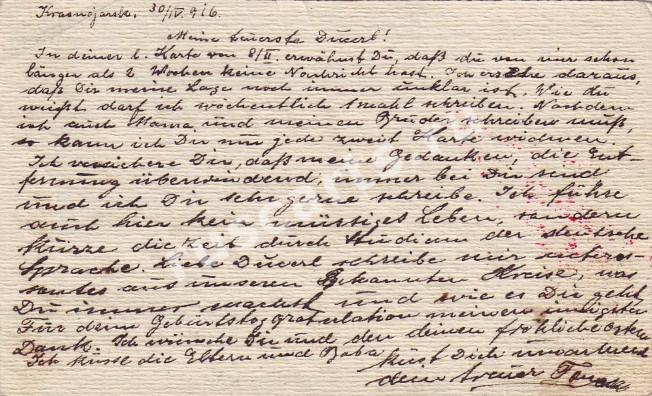 Krasnojarsk, 30/IV. 916.
Meine teuerste Ducerl!
In deiner l. Karte von 8/II. erwähnst Du, daß du von mir schon
länger als 2 Wochen keine Nachricht hast. Ich ersehe daraus,
daß Dir meine Lage noch immer unklar ist. Wie du
weißt darf ich wöchentlich 1mahl schreiben. Nachdem
ich auch Mama und meinen Bruder schreiben muß,
so kann ich Dir nur jede zweit Karte widmen.
Ich versichere Dir, daß meine Gedanken, die Ent-
fernung überwindend, immer bei Dir sind
und ich Dir sehr gerne schreibe. Ich führe
auch hier kein müssiges Leben, sondern
kürze die Zeit durch Studium der deutsche
Sprache. Liebe Ducerl schreibe mir
aus unseren Bekannten Kreise, was
Du immer machst und wie es Dir geht.
Für deine Geburtstag gratulation meinen innigsten
Dank. Ich wünsche Dir und den deinen fröhliche Ostern
Ich küsse die Eltern und Baba
küst Dich
dein treuer